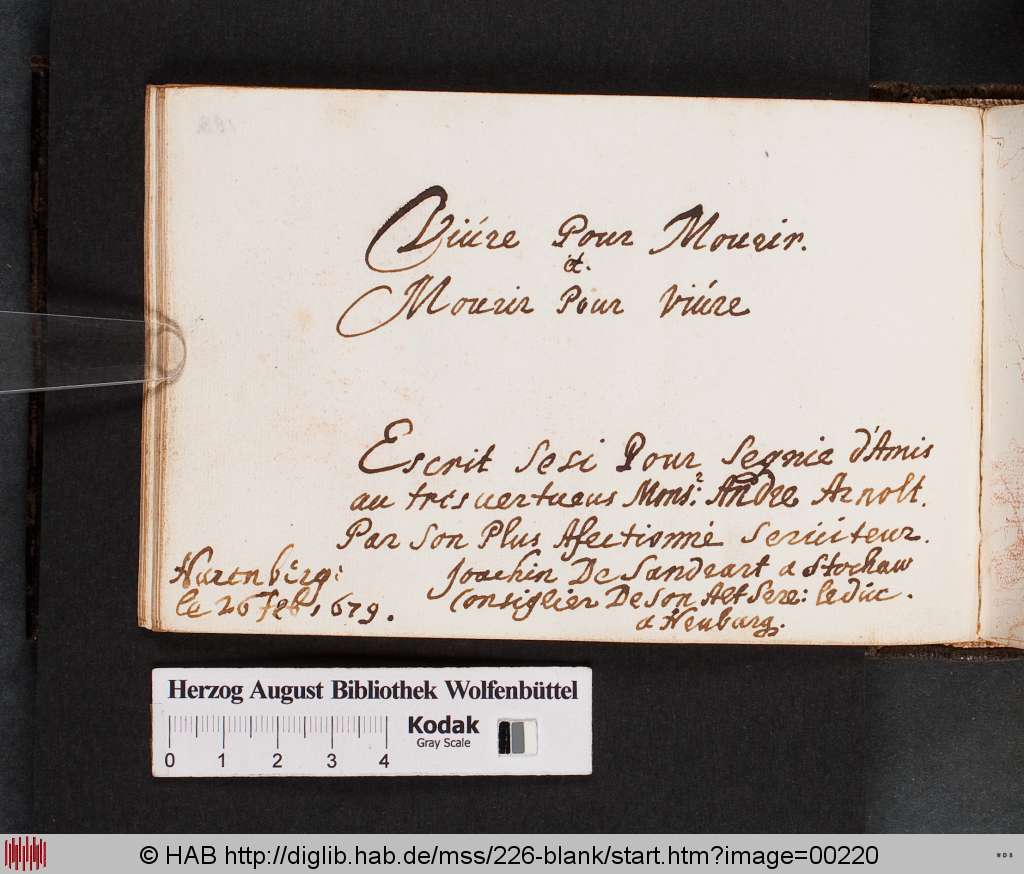 Viúre Pour Mourir.
et.
Mourir Pour Viúre
Escrit Sesi Pour Segnie d'Amis
au tres uertueus Monsr: Andre Arnolt.
Par Son Plus Afectionné Seruiteur.
Joachin De Sandrart a Stochaw
Consiglier De Son Alt Sere: le duc.
a Neubarg.
Nurenberg:
le 26 Feb, 1679.
Herzog August Bibliothek Wolfenbüttel
Kodak
Gray Scale
0 1 2 3 4
© HAB http://diglib.hab.de/mss/226-blank/start.htm?image=00220
WDB